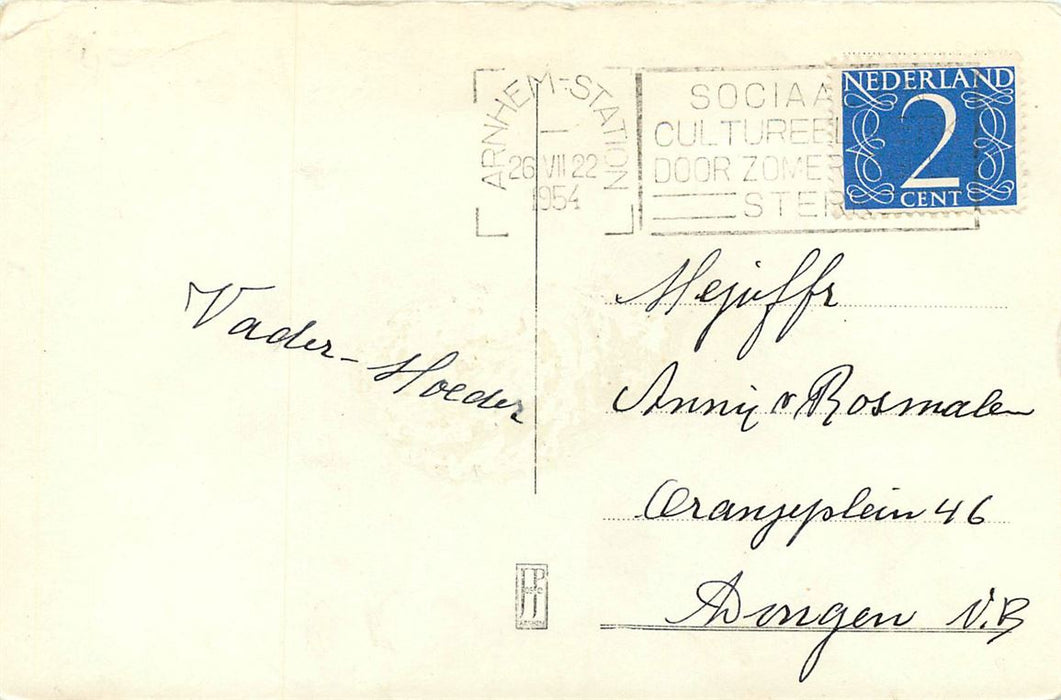 ARNHEM-STATION
26 VII 22
1954
SOCIAA
CULTUREEL
DOOR ZOMER
STER
NEDERLAND
2
CENT
Vader-Moeder
Mejuffr
Anny v Rosmalen
Oranjeplein 46
Dongen N.B